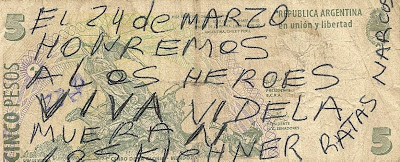 5
REPÚBLICA ARGENTINA
en unión y libertad
EL 24 de MARZO
HONREMOS
A LOS HEROES
VIVA VIDELA
MUERAN
LOS KISHNER RATAS NARCOS
CINCO PESOS
5